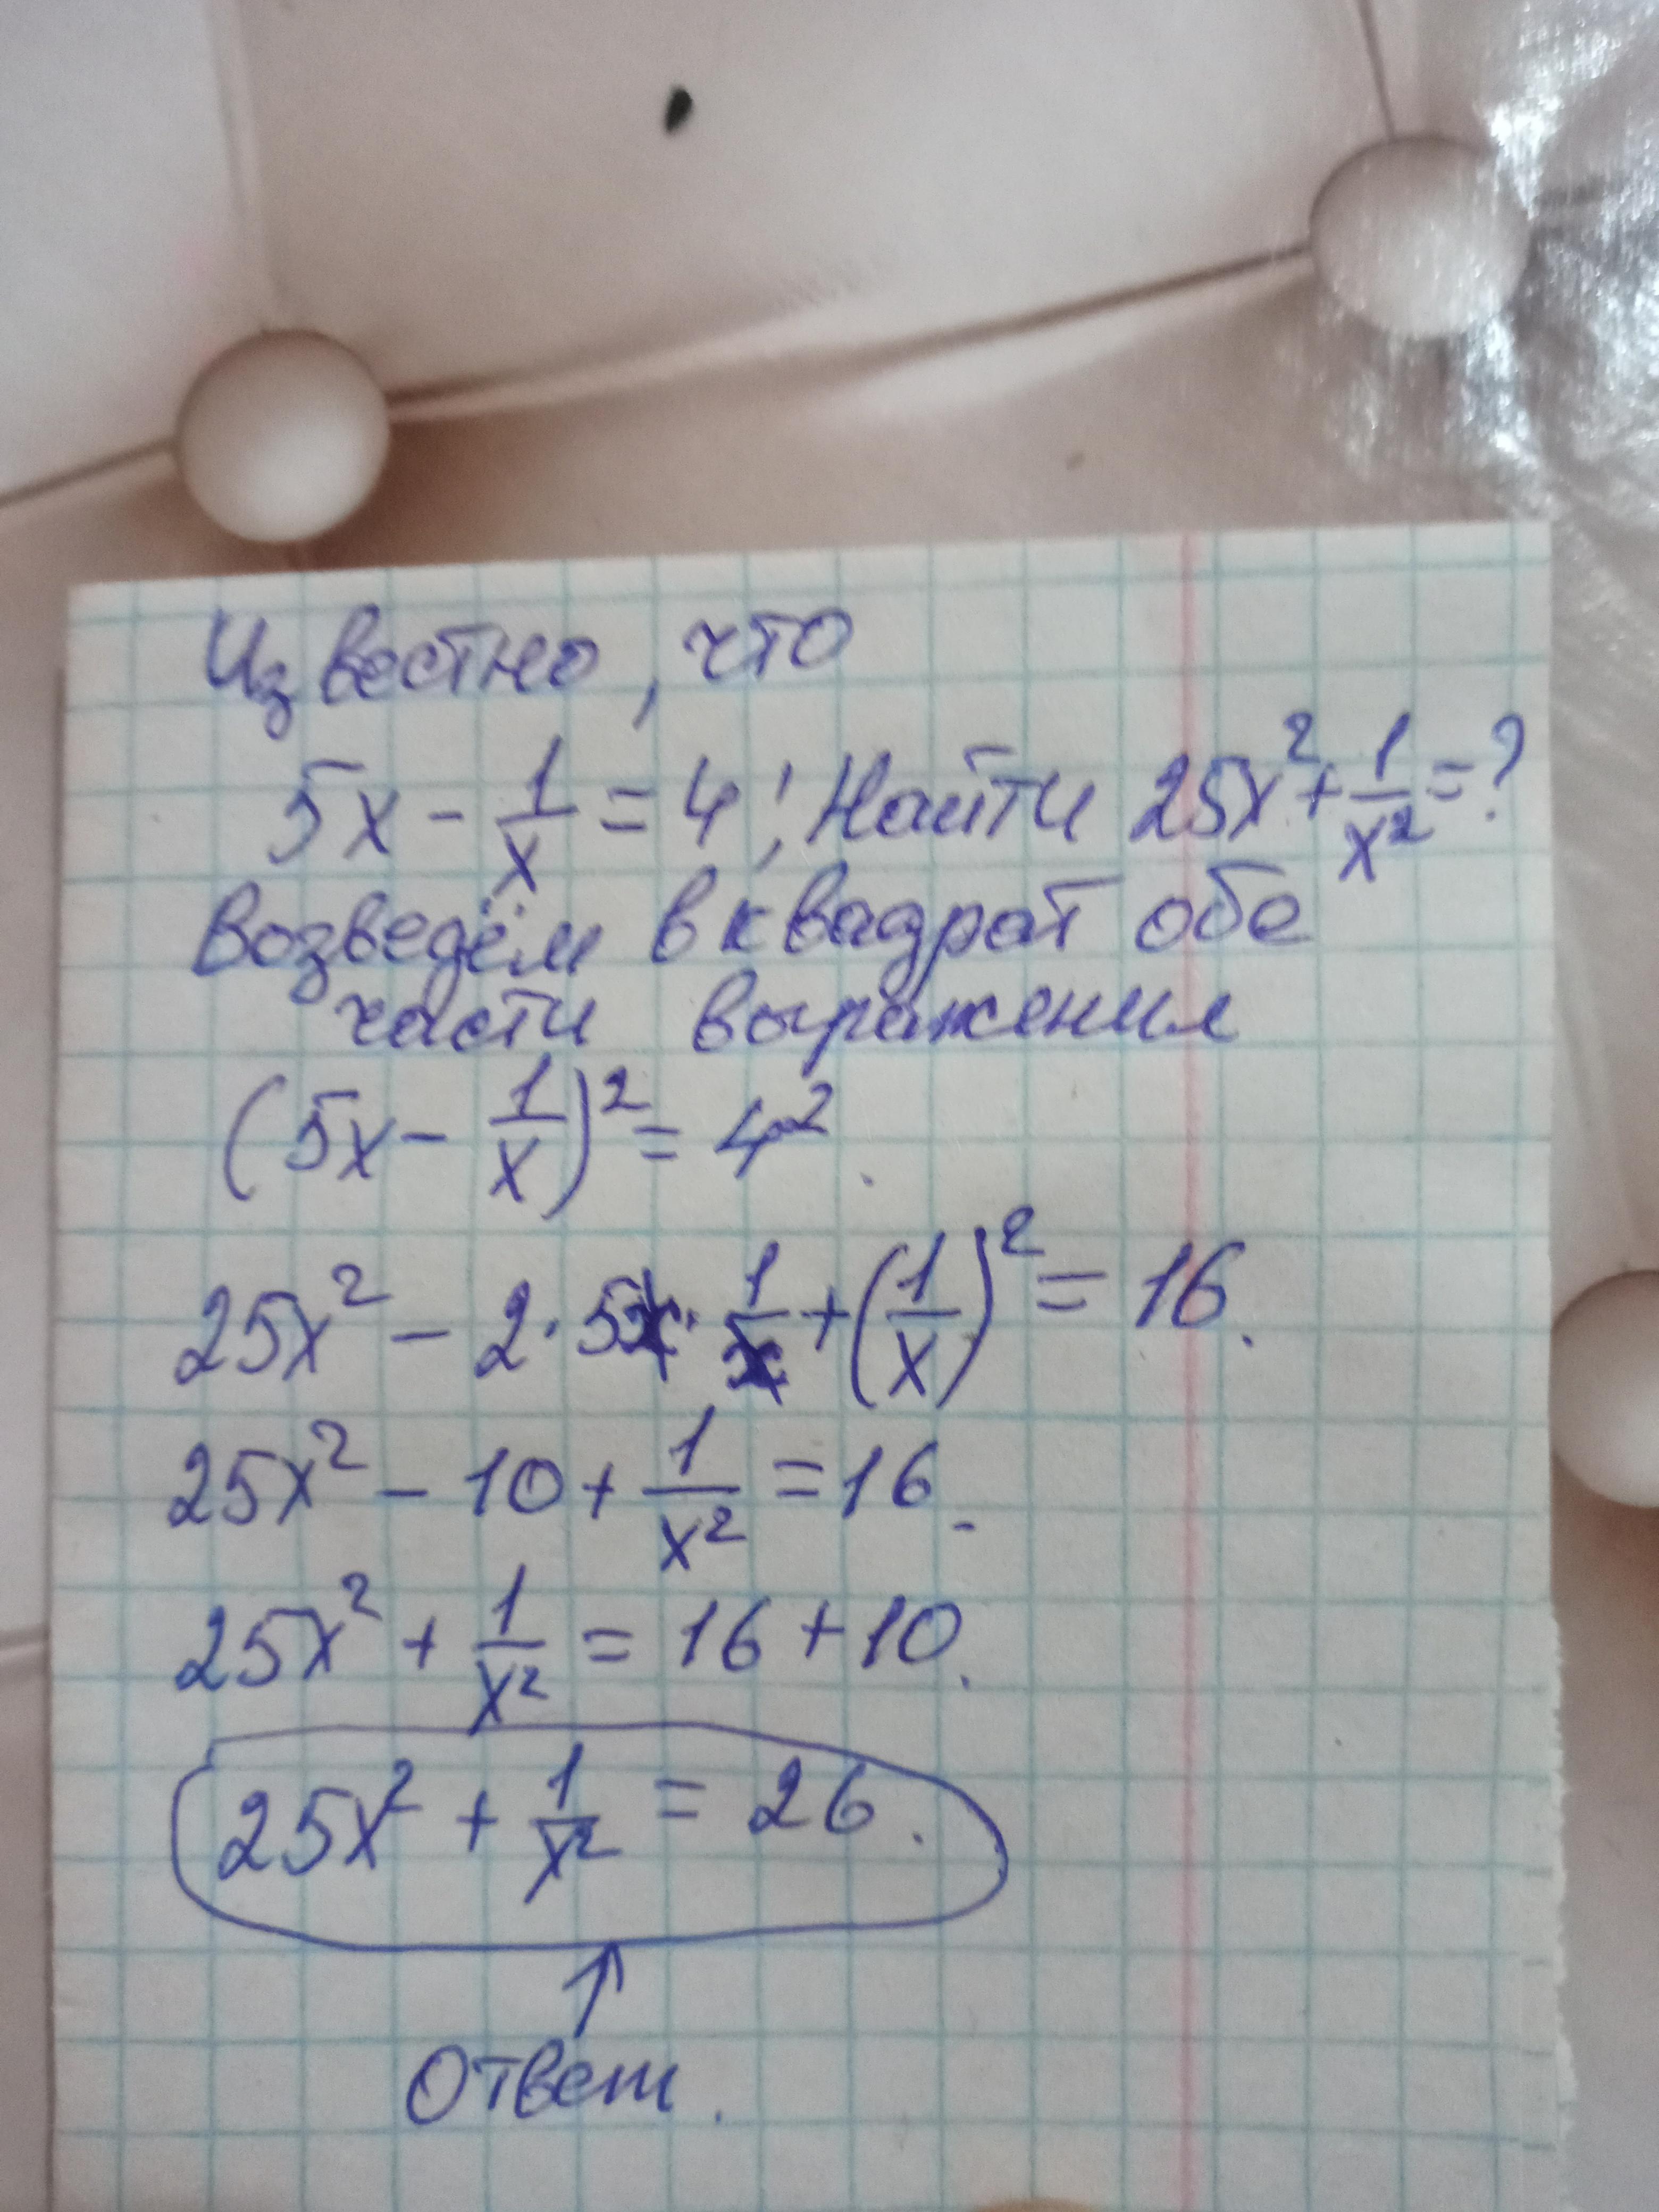 Известно, что
5x - 1/x = 4; Найти 25x² + 1/x² = ?
Возведём в квадрат обе
части выражения
(5x - 1/x)² = 4².
25x² - 2·5x·1/x + (1/x)² = 16.
25x² - 10 + 1/x² = 16.
25x² + 1/x² = 16 + 10.
25x² + 1/x² = 26.
Ответ.